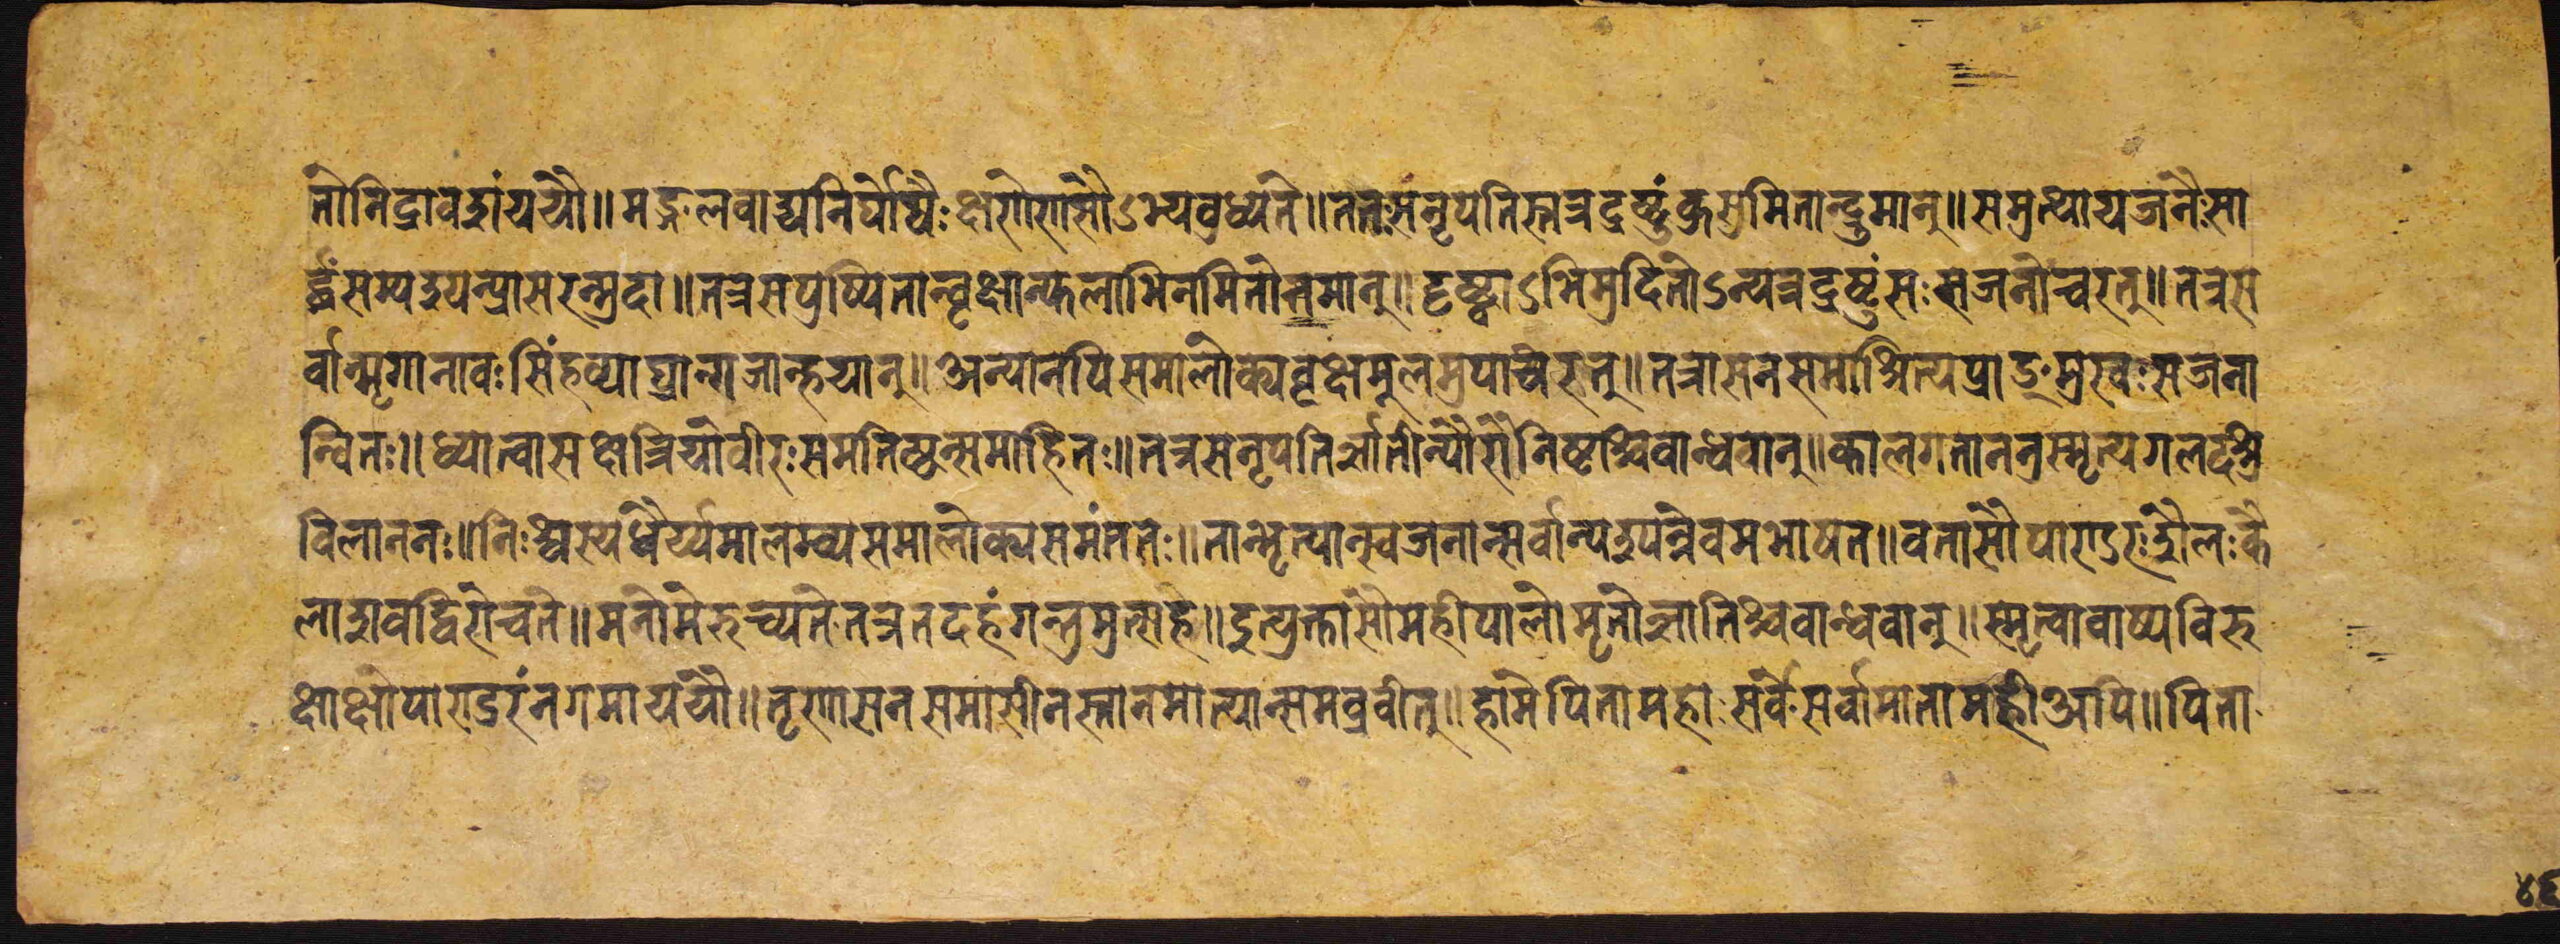 तो निद्रावशं ययौ॥ मङ्गलवाद्यनिर्घोषैः क्षणेणासौऽभ्यवुध्यते॥ ततः स नृपतिस्तत्र द्रष्टुं कुसुमितान्द्रुमान्॥ समुत्थाय जनैः सा
र्द्धं सम्पश्यन्प्रासरन्मुदा॥ तत्र स पुष्पितान्वृक्षान्फलाभिनमितोत्तमान्॥ दृष्ट्वाऽभिमुदितोऽन्यत्र द्रष्टुं सः सजनोच्चरत्॥ तत्र स
र्वान्मृगानावः सिंहव्याघ्रान्गजान्हयान्॥ अन्यानपि समालोक्य वृक्षमूलमुपाचरत्॥ तत्रासनसमाश्रित्य प्राङ्मुखः सजना
न्वितः॥ ध्यात्वा स क्षत्रियो वीरः समतिष्ठन्समाहितः॥ तत्र स नृपतिर्ज्ञातीन्पौरोनिष्टाश्चिवान्धवान्॥ कालगताननुस्मृत्य गलदश्रु
विलाननः॥ निःश्वस्य धैर्य्यमालम्व्य समालोक्य समंततः॥ तान्भृत्यान्स्वजनान्सर्वान्पश्यन्नेवमभाषत॥ वतासौ पाराऽरः शैलः कै
लाशवद्विरोचते॥ मनो मे रुच्यते तत्र तदहं गन्तुमुत्सहे॥ इत्युक्तासौ महीपालो मृतो ज्ञातिश्चिवान्धवान्॥ स्मृत्वा वाष्पविरु
क्षाक्षो पाराडरं नगमाययौ॥ तृणासनसमासीनस्तानमात्यान्समव्रवीत्॥ हा मे पितामहाः सर्वे सर्वा मातामही अपि॥ पिता
४६